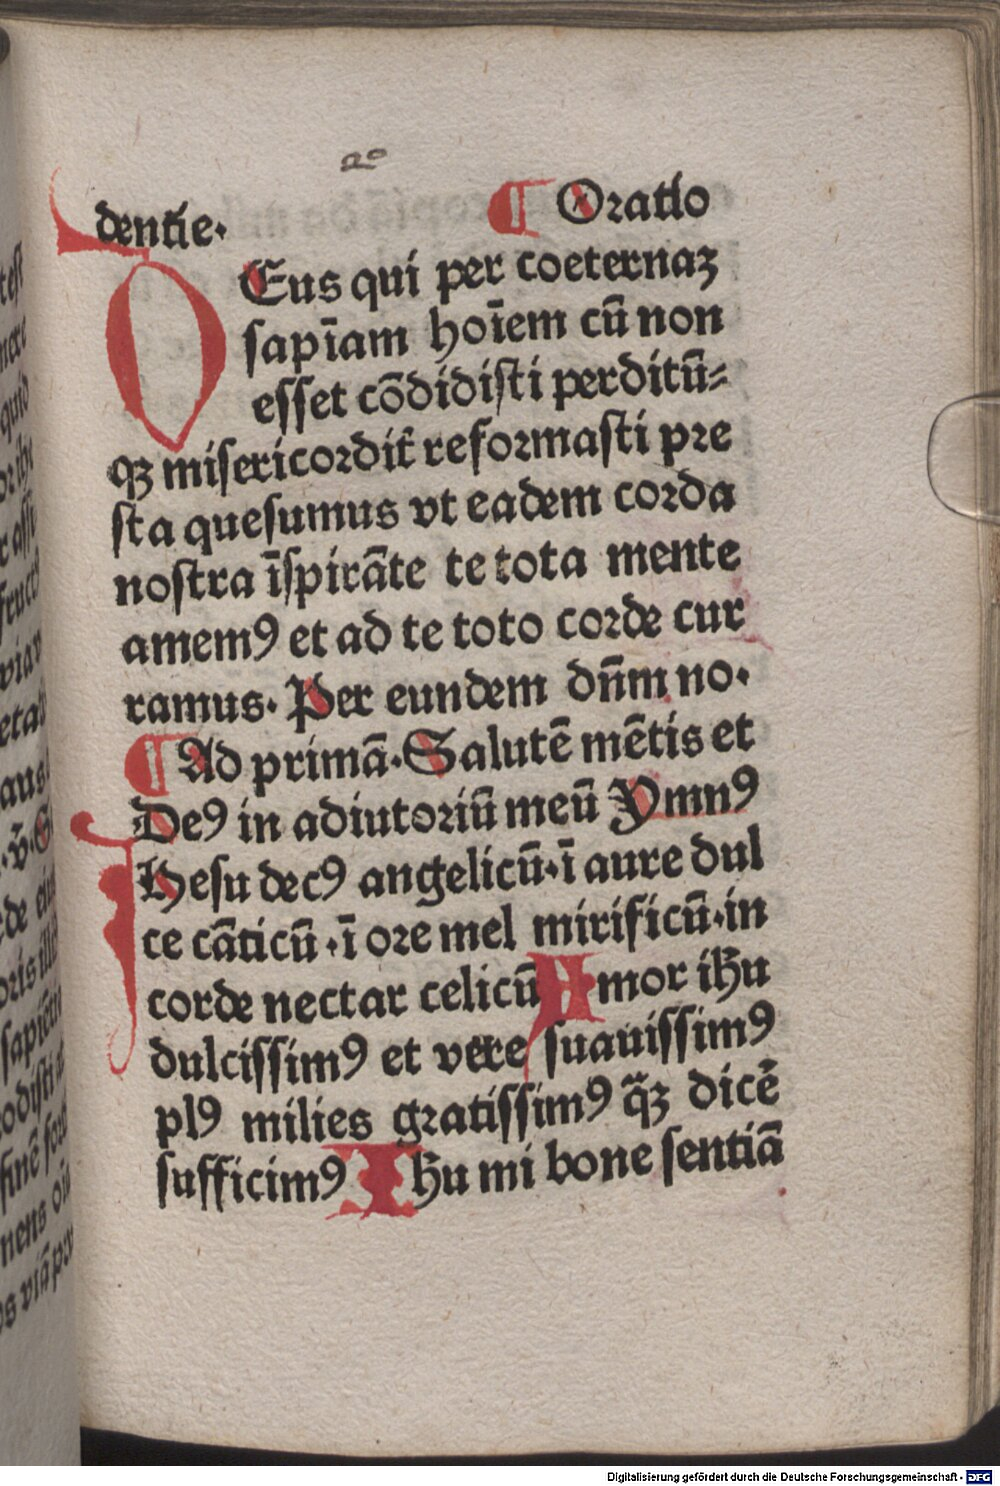 dentie. ¶ Oratio
DEus qui per coeternaʒ
sapīam hoīem cū non
esset cōdidisti perditū⸗
qʒ misericordit̉ reformasti pre
sta quesumus vt eadem corda
nostra īspirāte te tota mente
amemꝰ et ad te toto corde cur
ramus. Per eundem dn̄m no.
¶ Ad primā. Salutē mētis et
Deꝰ in adiutoriū meū Ymnꝰ
IHesu decꝰ angelicū. ī aure dul
ce cāticū. ī ore mel mirificū. in
corde nectar celicū Amor ih̄u
dulcissimꝰ et vere suauissimꝰ
plꝰ milies gratissimꝰ q̄ʒ dicē
sufficimꝰ Ih̄u mi bone sentiā
Digitalisierung gefördert durch die Deutsche Forschungsgemeinschaft - DFG